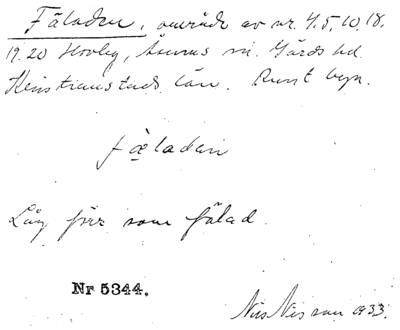 Fäladen, område av nr. 4.5.10.18.
19.20 Hovby, Åsums sn. Gärds hd.
Kristianstads län. Runt byn.
fæladen
Låg förr som fälad.
Nr 5344.
Nils Nilsson 1933.